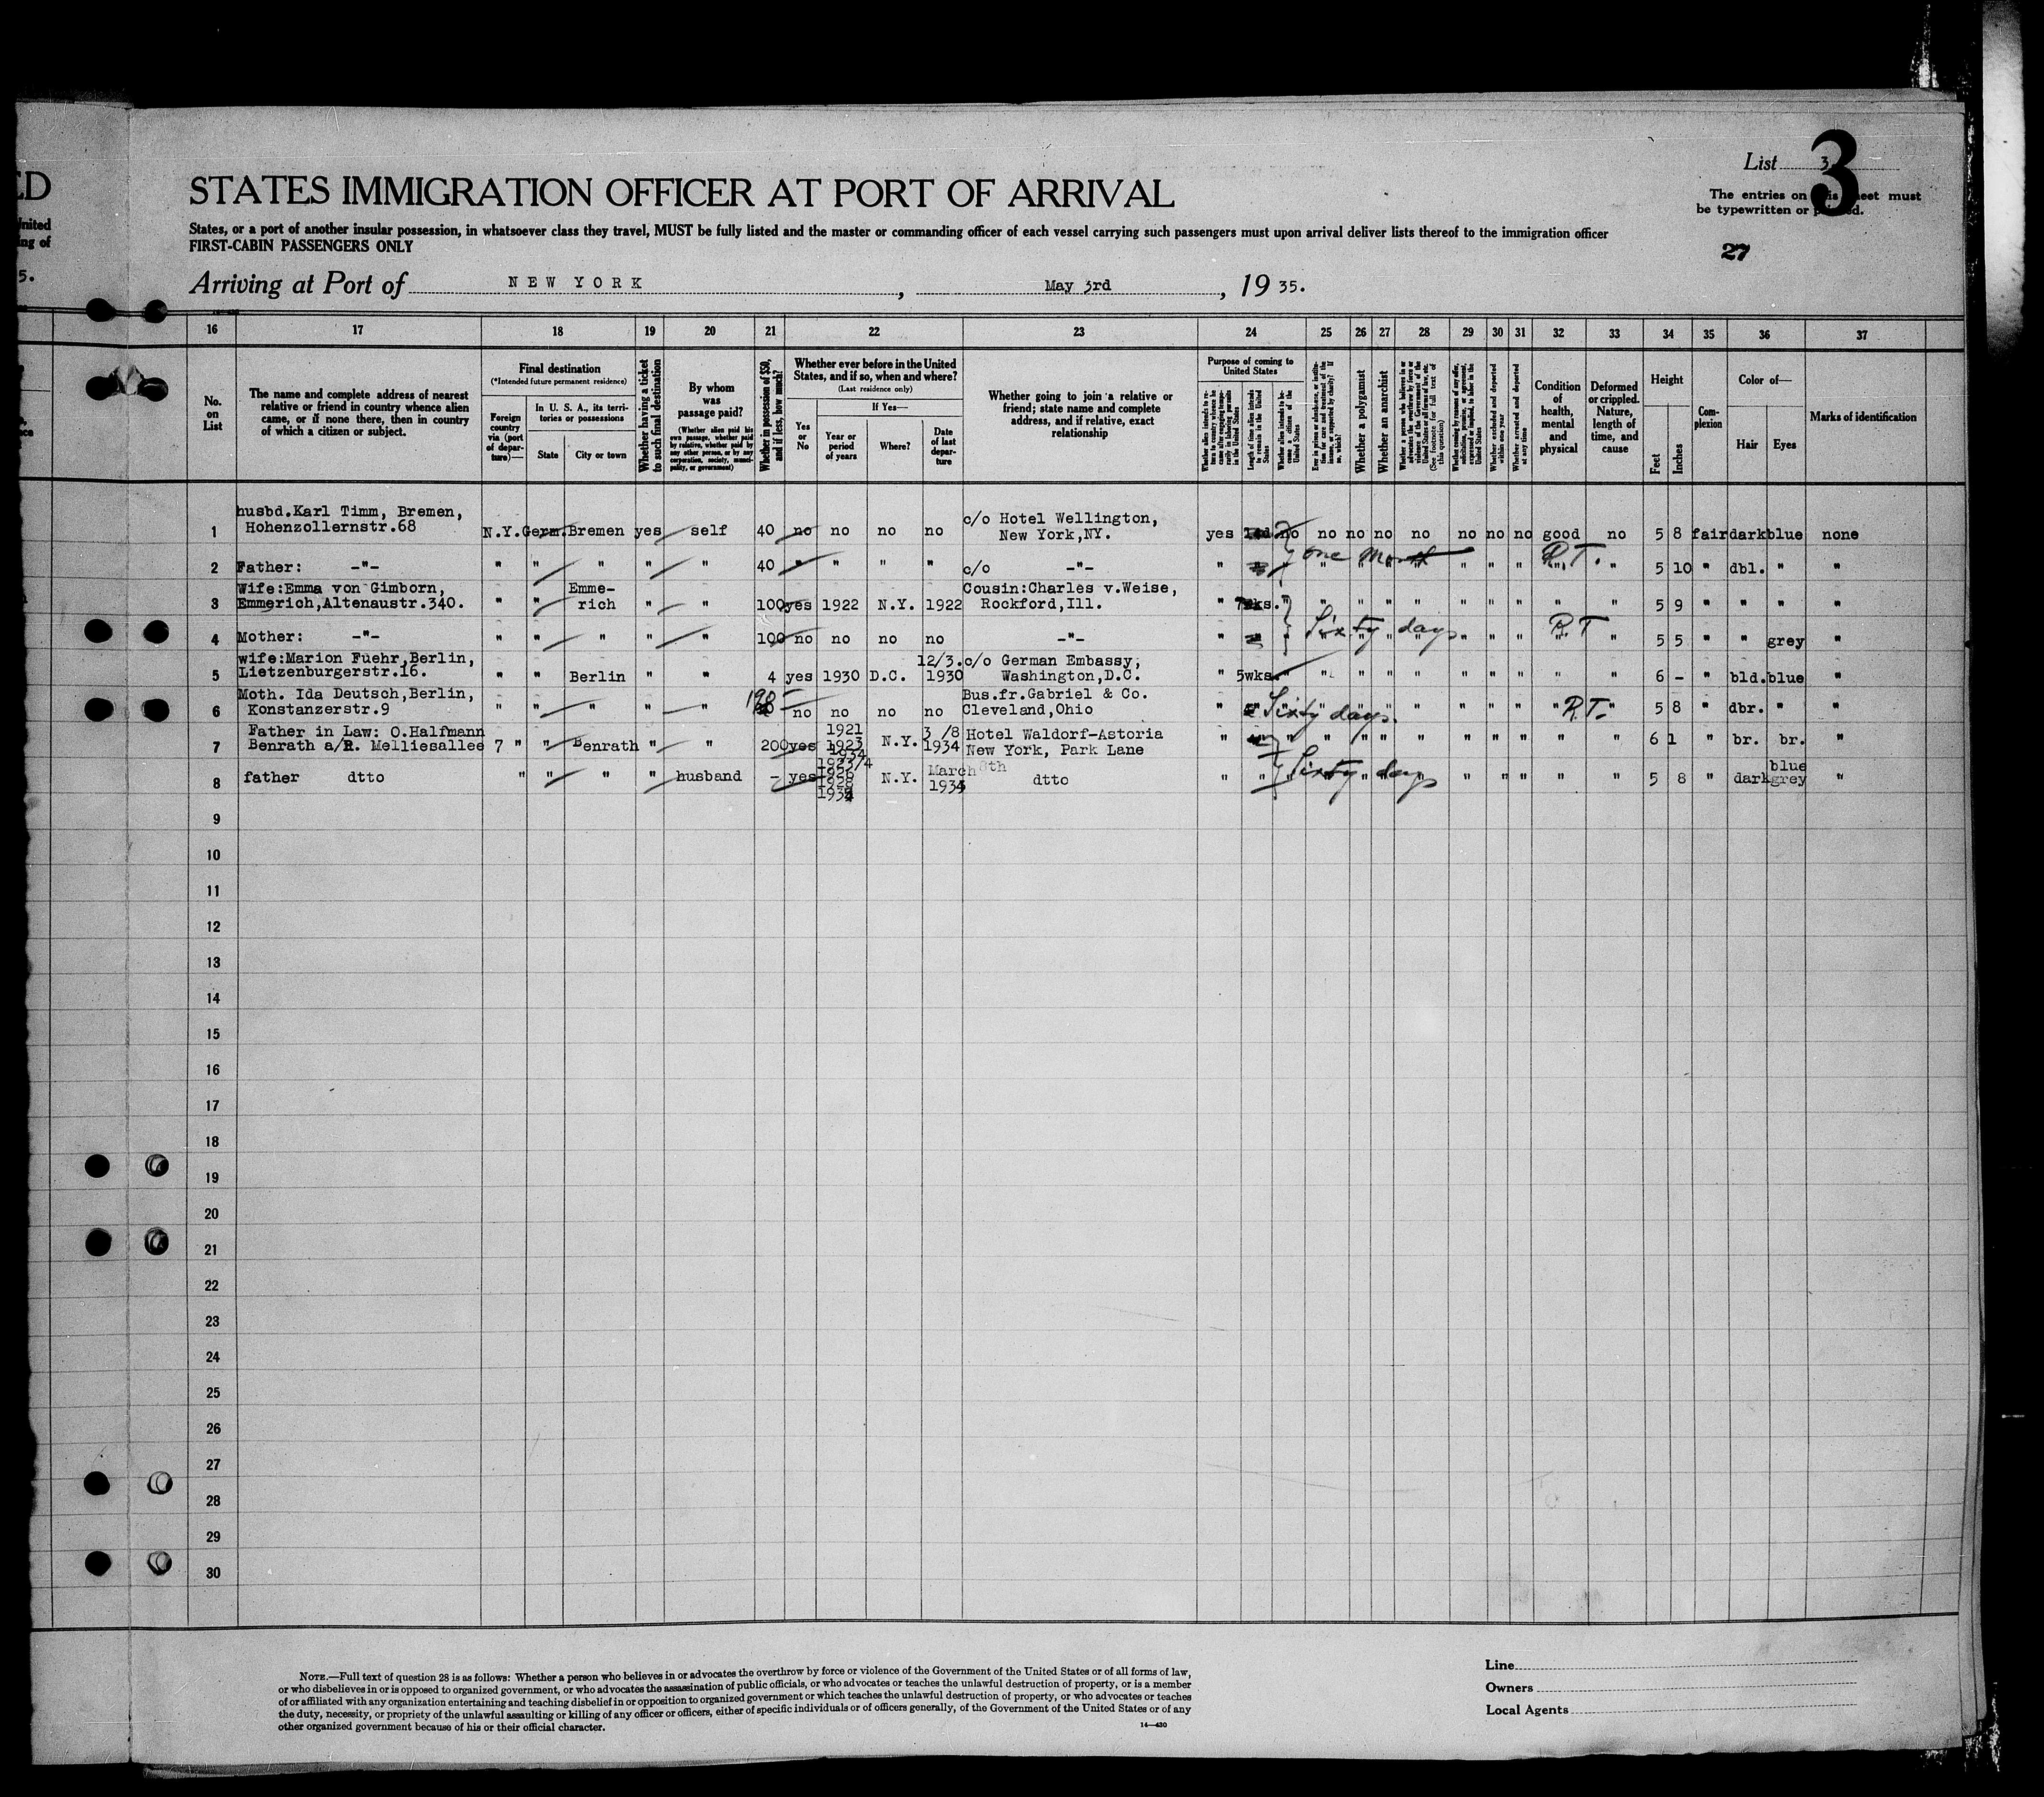 ED
STATES IMMIGRATION OFFICER AT PORT OF ARRIVAL
List 3
3
The entries on this sheet must
be typewritten or printed.
United
ing of
States, or a port of another insular possession, in whatsoever class they travel, MUST be fully listed and the master or commanding officer of each vessel carrying such passengers must upon arrival deliver lists thereof to the immigration officer
FIRST-CABIN PASSENGERS ONLY
27
5.
Arriving at Port of NEW YORK, May 3rd, 1935.
16 17 18 19 20 21 22 23 24 25 26 27 28 29 30 31 32 33 34 35 36 37
No. on List
The name and complete address of nearest
relative or friend in country whence alien
came, or if none there, then in country
of which a citizen or subject.
Final destination
(*Intended future permanent residence)
Foreign country via (port of departure)—
In U. S. A., its territories or possessions
State
City or town
Whether having a ticket to such final destination
By whom was passage paid?
(Whether alien paid his own passage, whether paid by relative, whether paid by any other person, or by any corporation, society, municipality, or government)
Whether in possession of $50, and if less, how much?
Whether ever before in the United
States, and if so, when and where?
(Last residence only)
Yes or No
If Yes—
Year or period of years
Where?
Date of last departure
Whether going to join a relative or
friend; state name and complete
address, and if relative, exact
relationship
Purpose of coming to United States
Whether alien intends to return to country whence he came after engaging temporarily in laboring pursuits in the United States
Length of time alien intends to remain in the United States
Whether alien intends to become a citizen of the United States
Ever in prison or almshouse, or institution for care and treatment of the insane, or supported by charity? If so, which?
Whether a polygamist
Whether an anarchist
Whether a person who believes in or advocates the overthrow by force or violence of the Government of the United States or all forms of law, etc. (See footnote for full text of this question)
Whether coming by reason of any offer, solicitation, promise, or agreement, expressed or implied, to labor in the United States
Whether excluded and deported within one year
Whether arrested and deported at any time
Condition of health, mental and physical
Deformed or crippled. Nature, length of time, and cause
Height
Feet
Inches
Complexion
Color of—
Hair
Eyes
Marks of identification
husbd.Karl Timm, Bremen,
1 Hohenzollernstr.68 N.Y. Germ. Bremen yes self 40 no no no no c/o Hotel Wellington, New York,NY. yes no no no no no no no no good no 5 8 fair dark blue none
one month R.T.
2 Father: -"- " " " " " 40 " " " " c/o -"- " " " " " " " " " " " 5 10 " dbl. " "
Wife:Emma von Gimborn,
3 Emmerich,Altenaustr.340. " " Emmerich " " 100 yes 1922 N.Y. 1922 Cousin:Charles v.Weise, Rockford,Ill. " wks. " " " " " " " " " " 5 9 " " " "
Sixty days R.T
4 Mother: -"- " " " " " 100 no no no no -"- " " " " " " " " " " " 5 5 " " grey "
wife:Marion Fuehr,Berlin,
5 Lietzenburgerstr.16. " " Berlin " " 4 yes 1930 D.C. 12/3. 1930 c/o German Embassy, Washington,D.C. " 5wks. " " " " " " " " " " 6 - " bld. blue "
Moth. Ida Deutsch,Berlin,
6 Konstanzerstr.9 " " " " " no no no no Bus.fr.Gabriel & Co. Cleveland,Ohio " Sixty days " " " " R.T. " 5 8 " dbr. " "
Father in Law: O.Halfmann
7 Benrath a/R. Melliesallee 7 " " Benrath " " 200 yes 1921 1923 1934 N.Y. 3 /8 1934 Hotel Waldorf-Astoria New York, Park Lane " " " " " " " " " " " 6 1 " br. br. "
8 father dtto " " " " husband - yes 1923/4 1926 1928 1934 N.Y. March 8th 1934 dtto " " Sixty days " " " " " " 5 8 " dark blue grey "
9
10
11
12
13
14
15
16
17
18
19
20
21
22
23
24
25
26
27
28
29
30
NOTE.—Full text of question 28 is as follows: Whether a person who believes in or advocates the overthrow by force or violence of the Government of the United States or of all forms of law,
or who disbelieves in or is opposed to organized government, or who advocates the assassination of public officials, or who advocates or teaches the unlawful destruction of property, or is a member
of or affiliated with any organization entertaining and teaching disbelief in or opposition to organized government or which teaches the unlawful destruction of property, or who advocates or teaches
the duty, necessity, or propriety of the unlawful assaulting or killing of any officer or officers, either of specific individuals or of officers generally, of the Government of the United States or of any
other organized government because of his or their official character.
14—430
Line
Owners
Local Agents